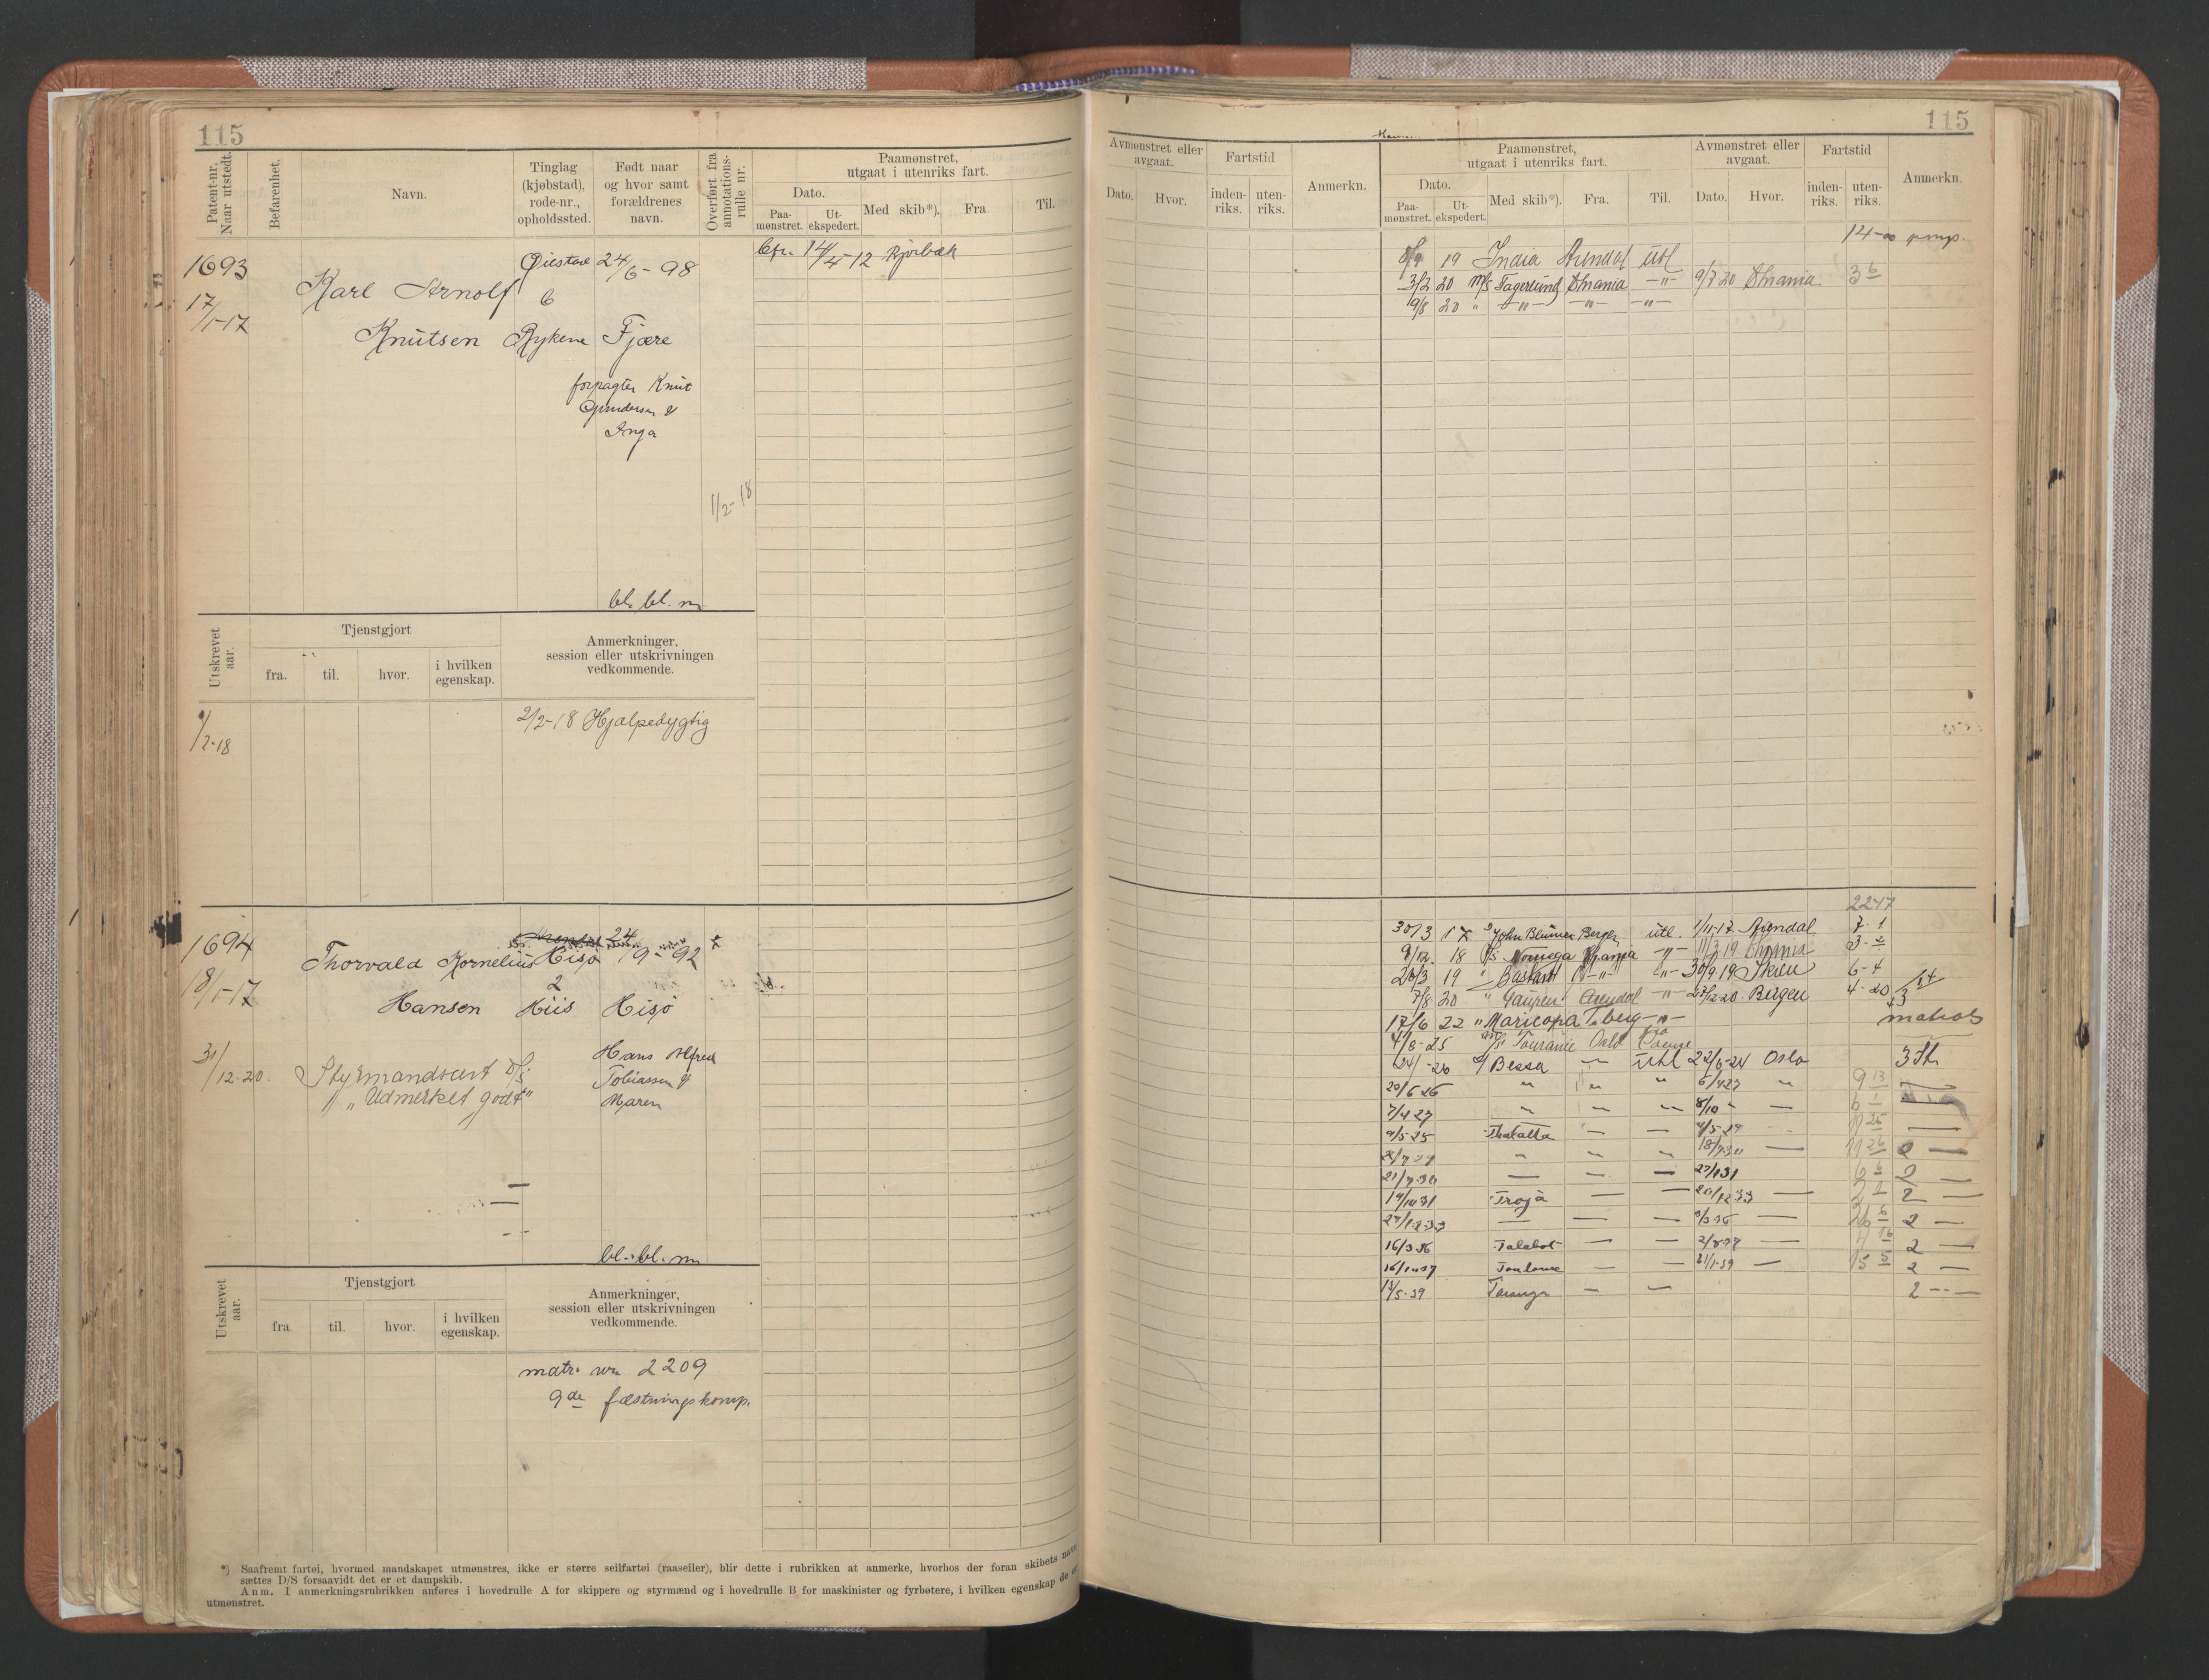 115
Patent-nr. Naar utstedt.
Befarenhet.
Navn.
Tinglag (kjøbstad), rode-nr., opholdssted.
Født naar og hvor samt forældrenes navn.
Overført fra annotations-rulle nr.
Paamønstret, utgaat i utenriks fart.
Dato.
Paa-mønstret.
Ut-ekspedert.
Med skib*).
Fra
Til.
1693
17/1-17
Karl Arnolf
Knutsen
Øiestad
6
Rykene
24/6-98
Fjære
forpagter Knut
Gundersen &
Inga
1/2-18
14/5-12
bl. bl. m
Utskrevet aar.
Tjenstgjort
fra.
til.
hvor.
i hvilken egenskap.
Anmerkninger,
session eller utskrivningen
vedkommende.
1/2-18
2/2-18 Hjælpedygtig
1694
18/1-17
Thorvald Kornelius
Hansen
Hisø
2
Hiis
24
/9-92
Hisø
Hans Alfred
Tobiassen &
Maren
31/12.20.
Styrmandscert D/S
"Udmerket godt"
bl. bl. m
Utskrevet aar.
Tjenstgjort
fra.
til.
hvor.
i hvilken egenskap.
Anmerkninger,
session eller utskrivningen
vedkommende.
matr. nr. 2209
9de fæstningskomp.
*) Saafremt fartøi, hvormed mandskapet utmønstres, ikke er større seilfartøi (raaseiler), blir dette i rubrikken at anmerke, hvorhos der foran skibets navn
sættes D/S forsaavidt det er et dampskib.
Anm. I anmerkningsrubrikken anføres i hovedrulle A for skippere og styrmænd og i hovedrulle B for maskinister og fyrbøtere, i hvilken egenskap de er
utmønstret.
115
Avmønstret eller avgaat.
Dato.
Hvor.
Fartstid
inden-riks.
uten-riks.
Anmerkn.
Paamønstret,
utgaat i utenriks fart.
Dato.
Paa-mønstret.
Ut-ekspedert.
Med skib*).
Fra.
Til.
Avmønstret eller avgaat.
Dato.
Hvor.
Fartstid
inden-riks.
uten-riks.
Anmerkn.
19 India Arendal Utl
3/2 20 M/S Fagerlund Khania -"- 9/7 20 Khania 3 6
9/8 20 " -"- -"- -"-
2247
30/3 17 John Blumer Bergen utl. 1/11-17 Arendal 7-1
9/12. 18 Noruega -"- 11/3 19 3-2
20/3 19 " Bastant -"- "- 30/9 19 Skien 6-4
7/8 20 " Gaupen Arendal -"- 27/12 20 Bergen 4-20
17/6 22 " Maricopa T.berg -"- matros
4/8-25 Touraine Oslo
Bessa — Utl 22/6-24 Oslo 3 St.
20/6 26 " " " 6/4 27 " 9 13
7/4 27 " — " 8/10 " — 6 1
9/5 25 Thalatta — — 4/5-29 11 25 —
" " " 18/7 30 — 11 26 2 —
21/7-30 — — — 27/1 31 6 6 2 —
19/10 31 Troja — — 20/12 33 — 2 —
27/12-33 — — — 2 —
16/3 36 Talabot — — — 2 —
16/10 37 Toulouse — — 21/1-39 — 15 5 2 —
15/5-39 — — 2 —